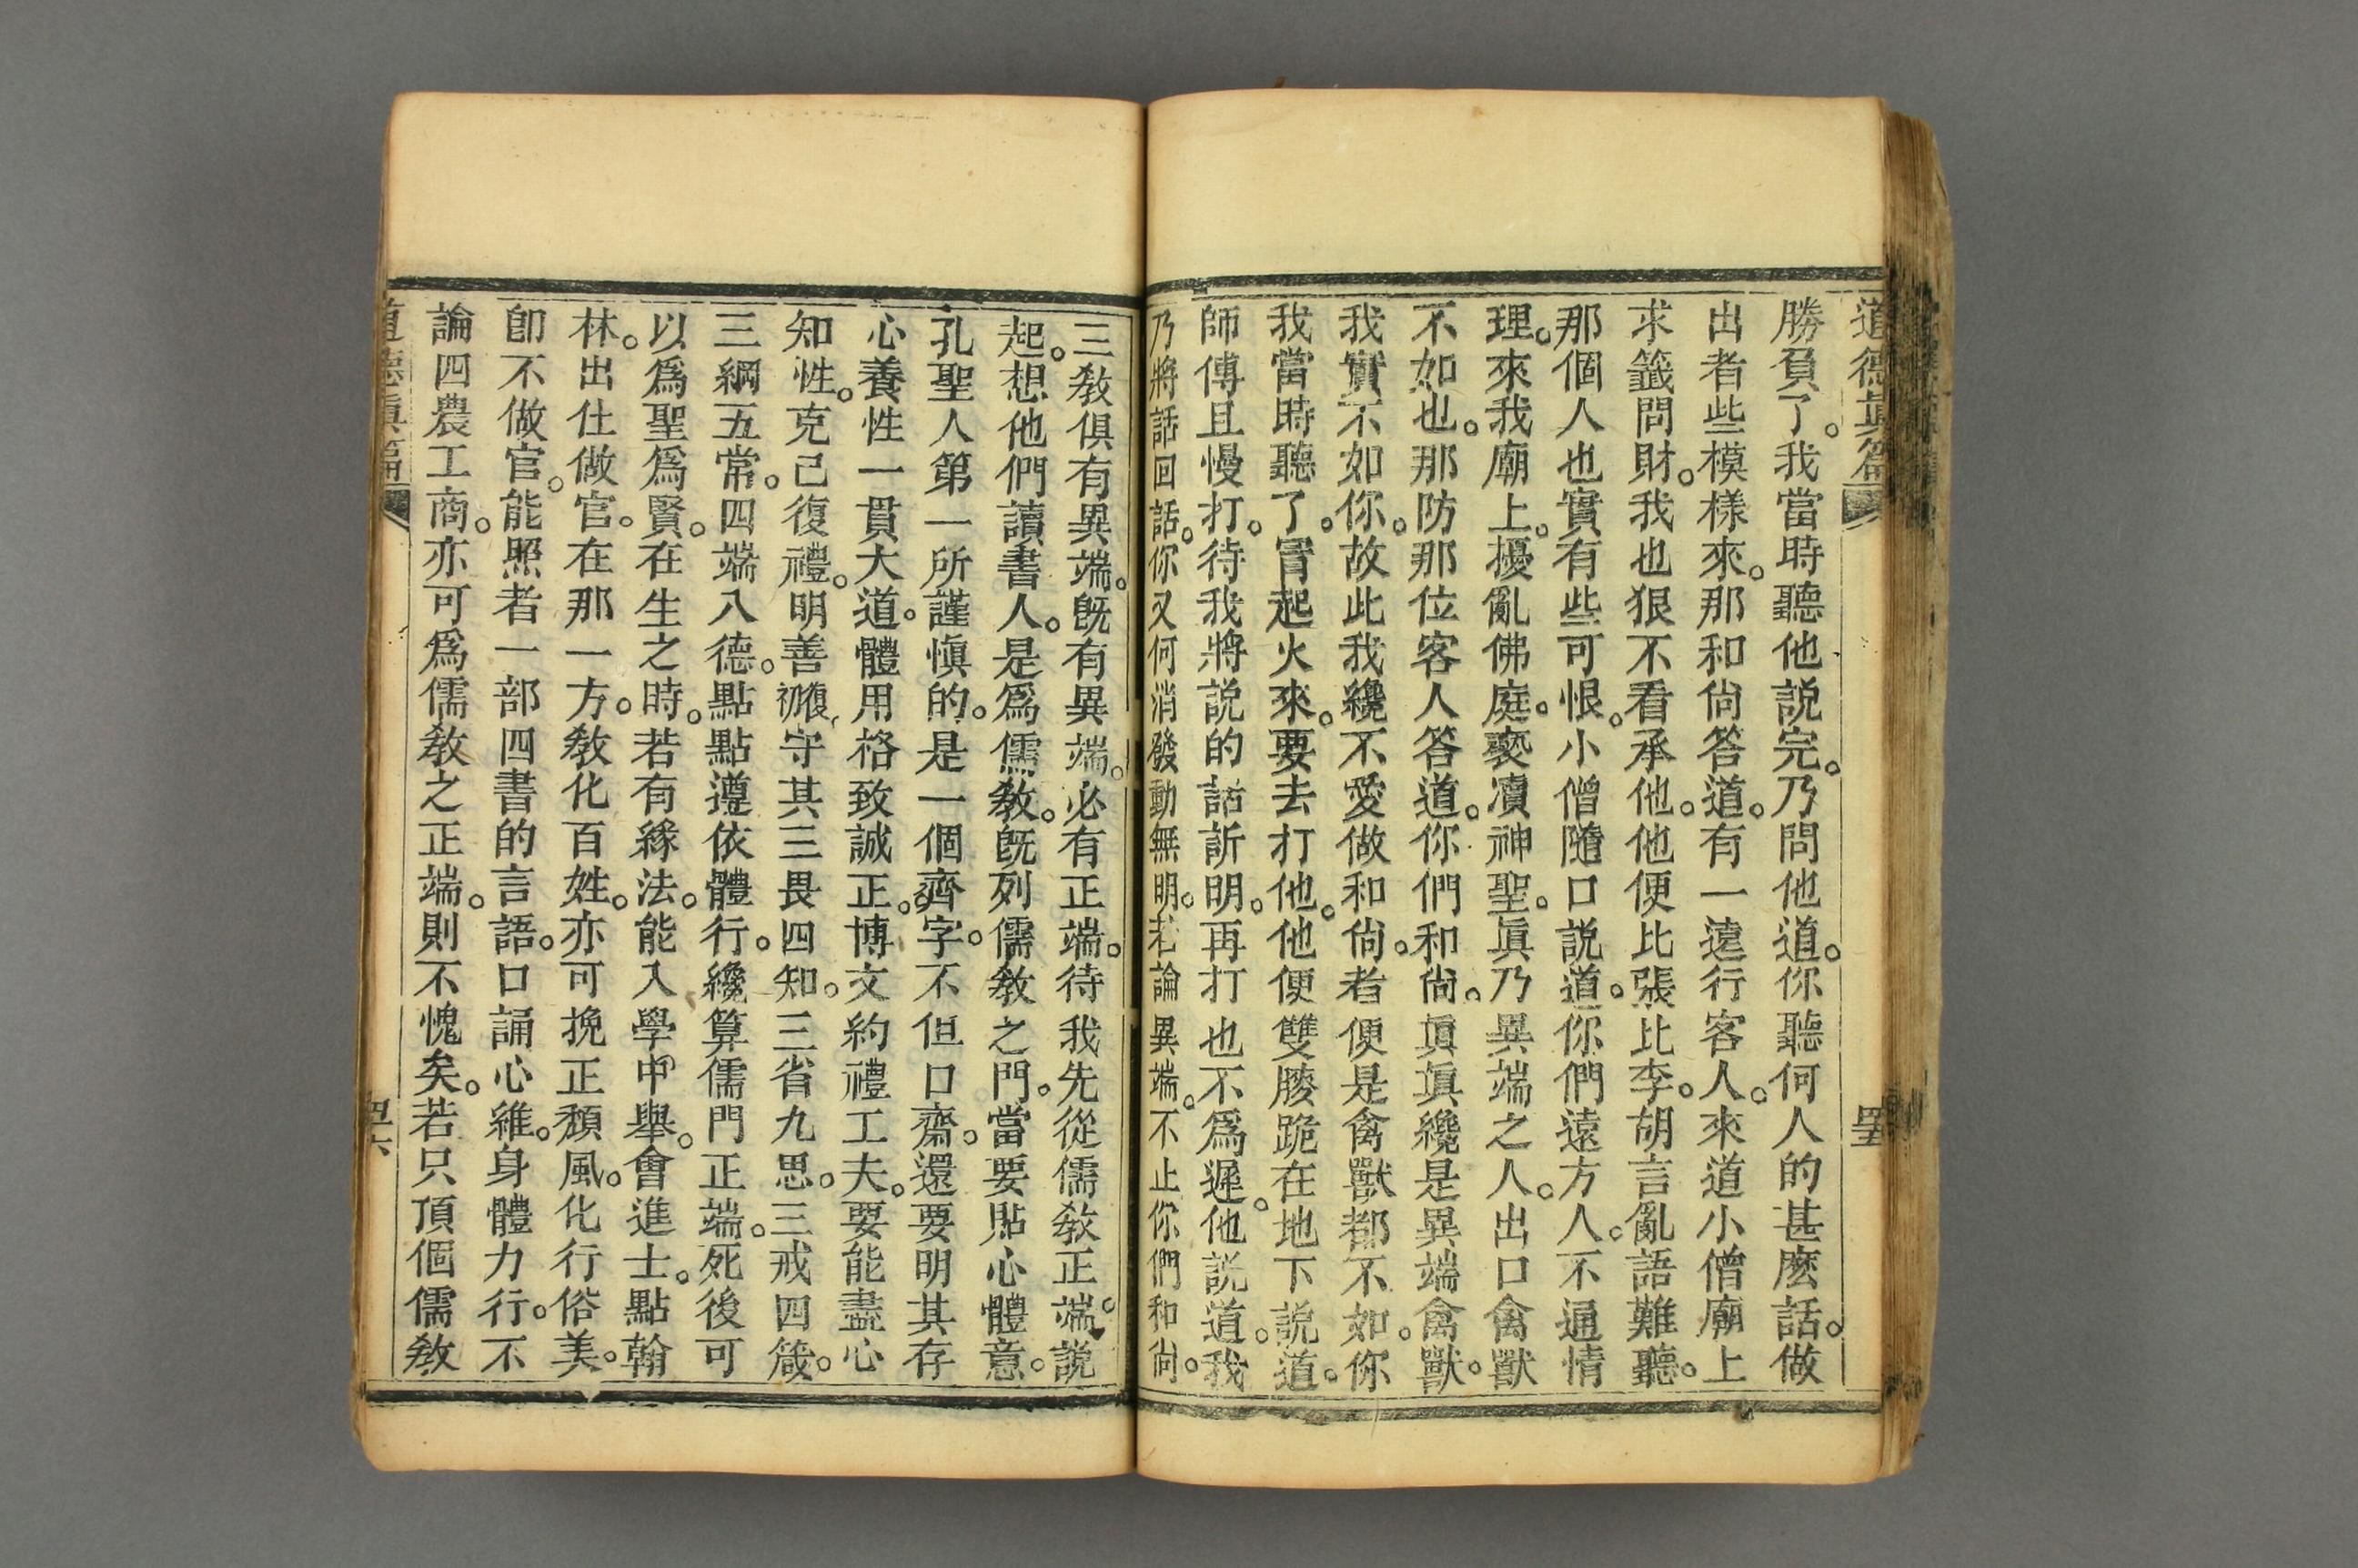 道德眞篇
勝負了。我當時聽他説完。乃問他道。你聽何人的甚麽話。做
出者些模樣來。那和尙答道。有一遠行客人。來道小僧廟上
求籤問財。我也狠不看承他。他便比張比李。胡言亂語難聽。
那個人也實有些可恨。小僧隨口説道。你們遠方人。不通情
理。來我廟上。擾亂佛庭。褻凟神聖。眞乃異端之人。出口禽獸
不如也。那防那位客人答道。你們和尙。眞眞纔是異端禽獸。
我實不如你。故此我纔不愛做和尙。者便是禽獸都不如。你
我當時聽了。冒起火來。要去打他。他便雙膝跪在地下説道。
師傅且慢打。待我將説的話訢明。再打也不爲遲。他説道。我
乃將話回話。你又何消發動無明。若論異端。不止你們和尙。
三敎俱有異端。旣有異端。必有正端。待我先從儒敎正端。說
起。想他們讀書人。是爲儒敎。旣列儒敎之門。當要貼心體意。
孔聖人第一所謹愼的。是一個齊字。不但口齋。還要明其存
心養性一貫大道。體用格致誠正。博文約禮工夫。要能盡心
知性。克己復禮。明善復初。守其三畏四知。三省九思。三戒四箴。
三綱五常。四端八德。點點遵依體行。纔算儒門正端。死後可
以爲聖爲賢。在生之時。若有緣法。能入學中舉。會進士。點翰
林。出仕做官。在那一方。敎化百姓。亦可挽正頹風。化行俗美。
卽不做官。能照者一部四書的言語。口誦心維。身體力行。不
論四農工商。亦可爲儒敎之正端。則不愧矣。若只頂個儒敎
道德眞篇